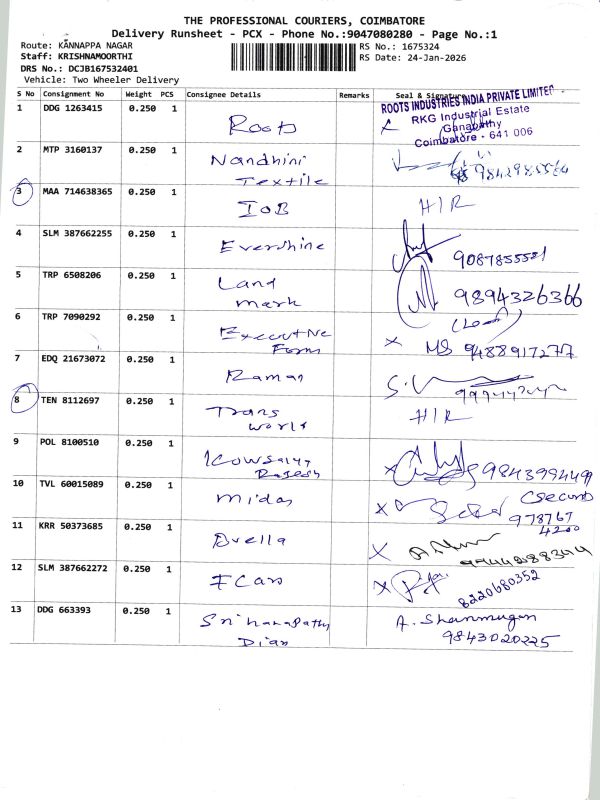 THE PROFESSIONAL COURIERS, COIMBATORE
Delivery Runsheet - PCX - Phone No.:9047080280 - Page No.:1
Route: KANNAPPA NAGAR
RS No.: 1675324
Staff: KRISHNAMOORTHI
RS Date: 24-Jan-2026
DRS No.: DCJB167532401
Vehicle: Two Wheeler Delivery
S No Consignment No Weight PCS Consignee Details Remarks Seal & Signature
ROOTS INDUSTRIES INDIA PRIVATE LIMITED
RKG Industrial Estate
Ganapathy
Coimbatore - 641 006
1 DDG 1263415 0.250 1 Roots
2 MTP 3160137 0.250 1 Nandhini
Textile
3 MAA 714638365 0.250 1 IOB H/R
4 SLM 387662255 0.250 1 Evershine 9087855521
5 TRP 6508206 0.250 1 Land
mark 9894326366
6 TRP 7090292 0.250 1 Executive
Form MS 9488917277
7 EDQ 21673072 0.250 1 Raman
8 TEN 8112697 0.250 1 Trans
world H/R
9 POL 8100510 0.250 1 Kowsalya
Rajesh 9843994499
10 TVL 60015089 0.250 1 Midas
978767
4200
11 KRR 50373685 0.250 1
12 SLM 387662272 0.250 1 I Cars 8220680352
13 DDG 663393 0.250 1 A. Shanmugam
9843020225